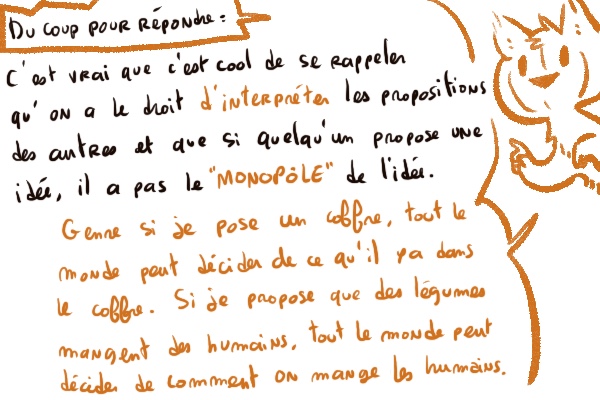 Du coup pour répondre :
C'est vrai que c'est cool de se rappeler
qu'on a le droit d'interpréter les propositions
des autres et que si quelqu'un propose une
idée, il a pas le "MONOPÔLE" de l'idée.
Genre si je pose un coffre, tout le
monde peut décider de ce qu'il ya dans
le coffre. Si je propose que des légumes
mangent des humains, tout le monde peut
décider de comment on mange les humains.